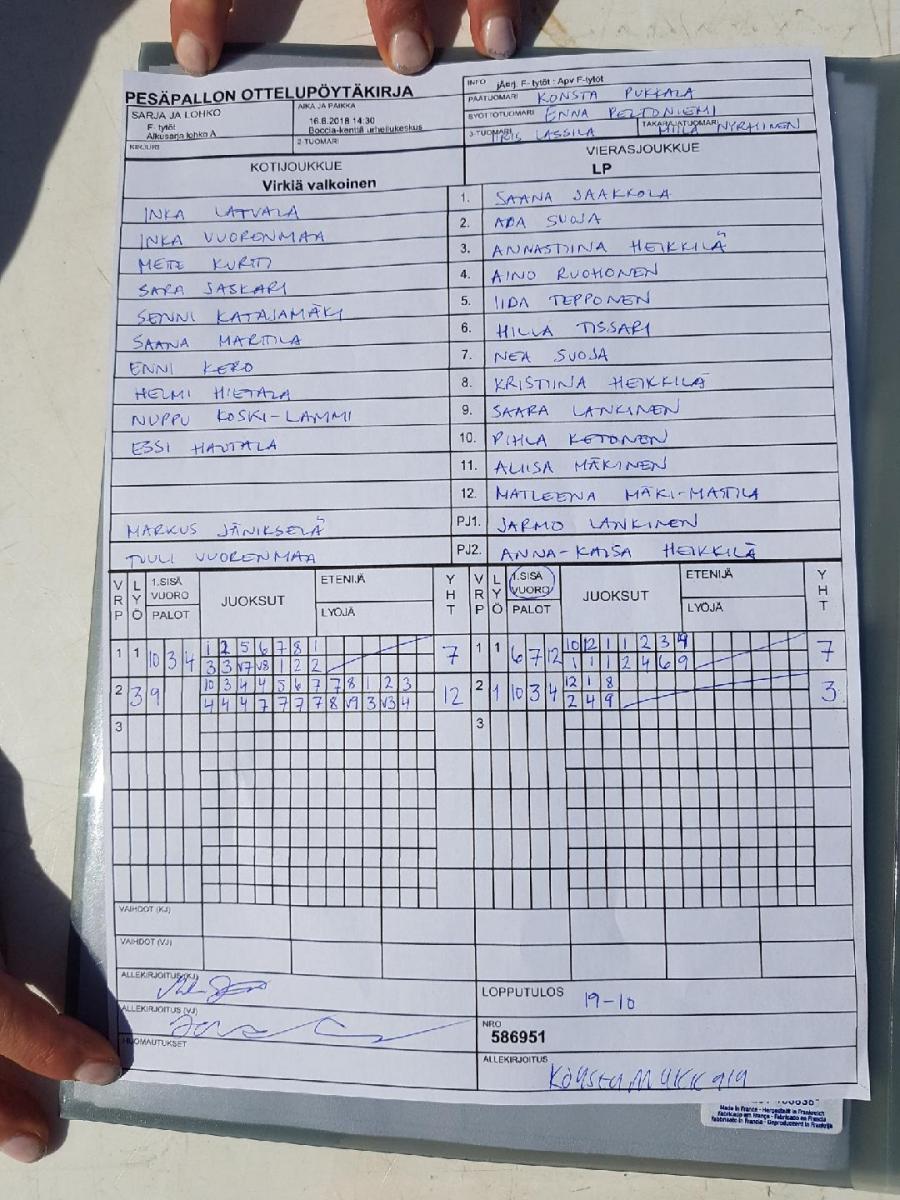 PESÄPALLON OTTELUPÖYTÄKIRJA
INFO jÄerj. F- tytöt : Apv F-tytöt
PÄÄTUOMARI KONSTA PUKKALA
SARJA JA LOHKO
F- tytöt
Alkusarja lohko A
AIKA JA PAIKKA
16.6.2018 14:30
Boccia-kenttä urheilukeskus
SYÖTTÖTUOMARI ENNA PELTONIEMI
KIRJURI
2-TUOMARI
3-TUOMARI IIRIS LASSILA
TAKARAJATUOMARI MIILA NYRHINEN
KOTIJOUKKUE
Virkiä valkoinen
VIERASJOUKKUE
LP
INKA LATVALA 1. SAANA JAAKKOLA
INKA VUORENMAA 2. ADA SUOJA
METE KURTTI 3. ANNASTIINA HEIKKILÄ
SARA SASKARI 4. AINO RUOHONEN
SENNI KATAJAMÄKI 5. IIDA TEPPONEN
SAANA MARTTILA 6. HILLA TISSARI
ENNI KERO 7. NEA SUOJA
HELMI HIETALA 8. KRISTIINA HEIKKILÄ
NUPPU KOSKI-LAMMI 9. SAARA LANKINEN
ESSI HAUTALA 10. PIHLA KETONEN
11. ALIISA MÄKINEN
12. MATLEENA MÄKI-MATTILA
MARKUS JÄNIKSELÄ PJ1. JARMO LANKINEN
TUULI VUORENMAA PJ2. ANNA-KAISA HEIKKILÄ
VRP LYÖ 1.SISÄ VUORO PALOT JUOKSUT ETENIJÄ LYÖJÄ YHT VRP LYÖ 1.SISÄ VUORO PALOT JUOKSUT ETENIJÄ LYÖJÄ YHT
1 1 10 3 4 1 2 5 6 7 8 1 7 1 1 6 7 12 10 12 1 1 2 3 4 7
3 3 V7 V8 1 2 2 1 1 1 2 4 6 9
2 3 9 10 3 4 4 5 6 7 7 8 1 2 3 12 2 1 10 3 4 12 1 8 3
4 4 4 7 7 7 7 8 V9 3 V3 4 2 4 9
3 3
VAIHDOT (KJ)
VAIHDOT (VJ)
ALLEKIRJOITUS (KJ)
LOPPUTULOS 19-10
ALLEKIRJOITUS (VJ)
NRO
586951
HUOMAUTUKSET
ALLEKIRJOITUS
Made in France - Hergestellt in Frankreich
Fabricado en Francia - Fabbricato in Francia